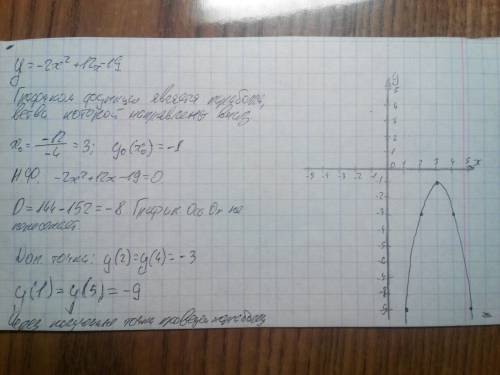 y = -2x² + 12x - 19
Графиком функции является парабола,
ветви которой направлены вниз
x₀ = -12/-4 = 3; y₀(x₀) = -1
Н.Ф. -2x² + 12x - 19 = 0
D = 144 - 152 = -8. График Ось Ox не
пересекает.
Доп. точки: y(2) = y(4) = -3
y(1) = y(5) = -9
Через полученные точки проведем параболу
y
5
4
3
2
1
-5 -4 -3 -2 -1 1 2 3 4 5 x
-1
-2
-3
-4
-5
-6
-7
-8
-9